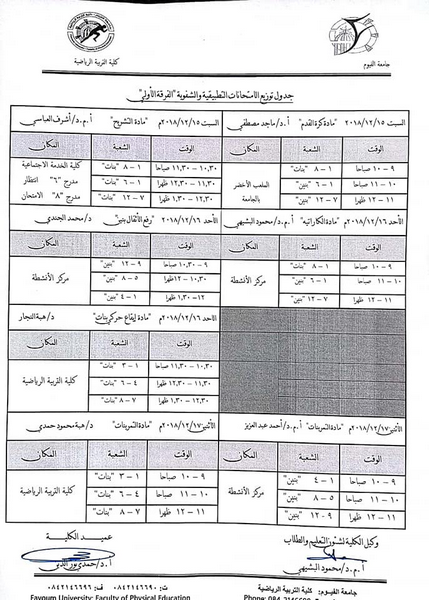 جامعة الفيوم
كلية التربية الرياضية
جدول توزيع الامتحانات التطبيقية والشفوية "الفرقة الأولي"
السبت ٢٠١٨/١٢/١٥م "مادة كرة القدم" أ.د/ماجد مصطفي
الوقت الشعبة المكان
٩ – ١٠ صباحا ١ – ٨ "بنات" الملعب الأخضر بالجامعة
١٠ – ١١ صباحا ١ – ٦ "بنين"
١١ – ١٢ ظهرا ٧ – ١٢ "بنين"
السبت ٢٠١٨/١٢/١٥م "مادة التشريح" أ.م.د/أشرف العباسي
الوقت الشعبة المكان
١٠,٣٠ – ١١,٣٠ صباحا ١ – ٨ "بنات" كلية الخدمة الاجتماعية
١١,٣٠ – ١٢,٣٠ ظهرا ١ – ٦ "بنات" مدرج "٦" انتظار
١٢,٣٠ – ١,٣٠ ظهرا ٧ – ١٢ "بنين" مدرج "٨" الامتحان
الأحد ٢٠١٨/١٢/١٦م "مادة الكاراتيه" أ.م.د/محمود الشبيهي
الوقت الشعبة المكان
٩ – ١٠ صباحا ١ – ٨ "بنات" مركز الأنشطة
١٠ – ١١ صباحا ١ – ٦ "بنين"
١١ – ١٢ ظهرا ٧ – ١٢ "بنين"
الأحد ٢٠١٨/١٢/١٦م "رفع الأثقال بنين" د/محمد الجندي
الوقت الشعبة المكان
٩ – ١٠,٣٠ صباحا ٩ – ١٢ "بنين" مركز الأنشطة
١٠,٣٠ – ١٢ ظهرا ٥ – ٨ "بنين"
١٢ – ١,٣٠ ظهرا ١ – ٤ "بنين"
الأحد ٢٠١٨/١٢/١٦م "مادة إيقاع حركي بنات" د/هبة النجار
الوقت الشعبة المكان
١٠,٣٠ – ١١,٣٠ صباحا ١ – ٣ "بنات" كلية التربية الرياضية
١١,٣٠ – ١٢,٣٠ ظهرا ٤ – ٦ "بنات"
١٢,٣٠ – ١,٣٠ ظهرا ٧ – ٨ "بنات"
الأثنين ٢٠١٨/١٢/١٧م "مادة التمرينات" أ.م.د/أحمد عبد العزيز
الوقت الشعبة المكان
٩ – ١٠ صباحا ١ – ٤ "بنين" مركز الأنشطة
١٠ – ١١ صباحا ٥ – ٨ "بنين"
١١ – ١٢ ظهرا ٩ – ١٢ "بنين"
الأثنين ٢٠١٨/١٢/١٧م "مادة التمرينات" د/هبة محمود حمدي
الوقت الشعبة المكان
٩ – ١٠ صباحا ١ – ٣ "بنات" كلية التربية الرياضية
١٠ – ١١ صباحا ٤ – ٦ "بنات"
١١ – ١٢ ظهرا ٧ – ٨ "بنات"
وكيل الكلية لشئون التعليم والطلاب
أ.م.د/محمود الشبيهي
عميد الكلية
أ.د/حمدي نور الدين
جامعة الفيوم: كلية التربية الرياضية ت: ٠٨٤٢١٤٦٦٩٠ ف: ٠٨٤٢١٤٦٦٩٦
Fayoum University: Faculty of Physical Education